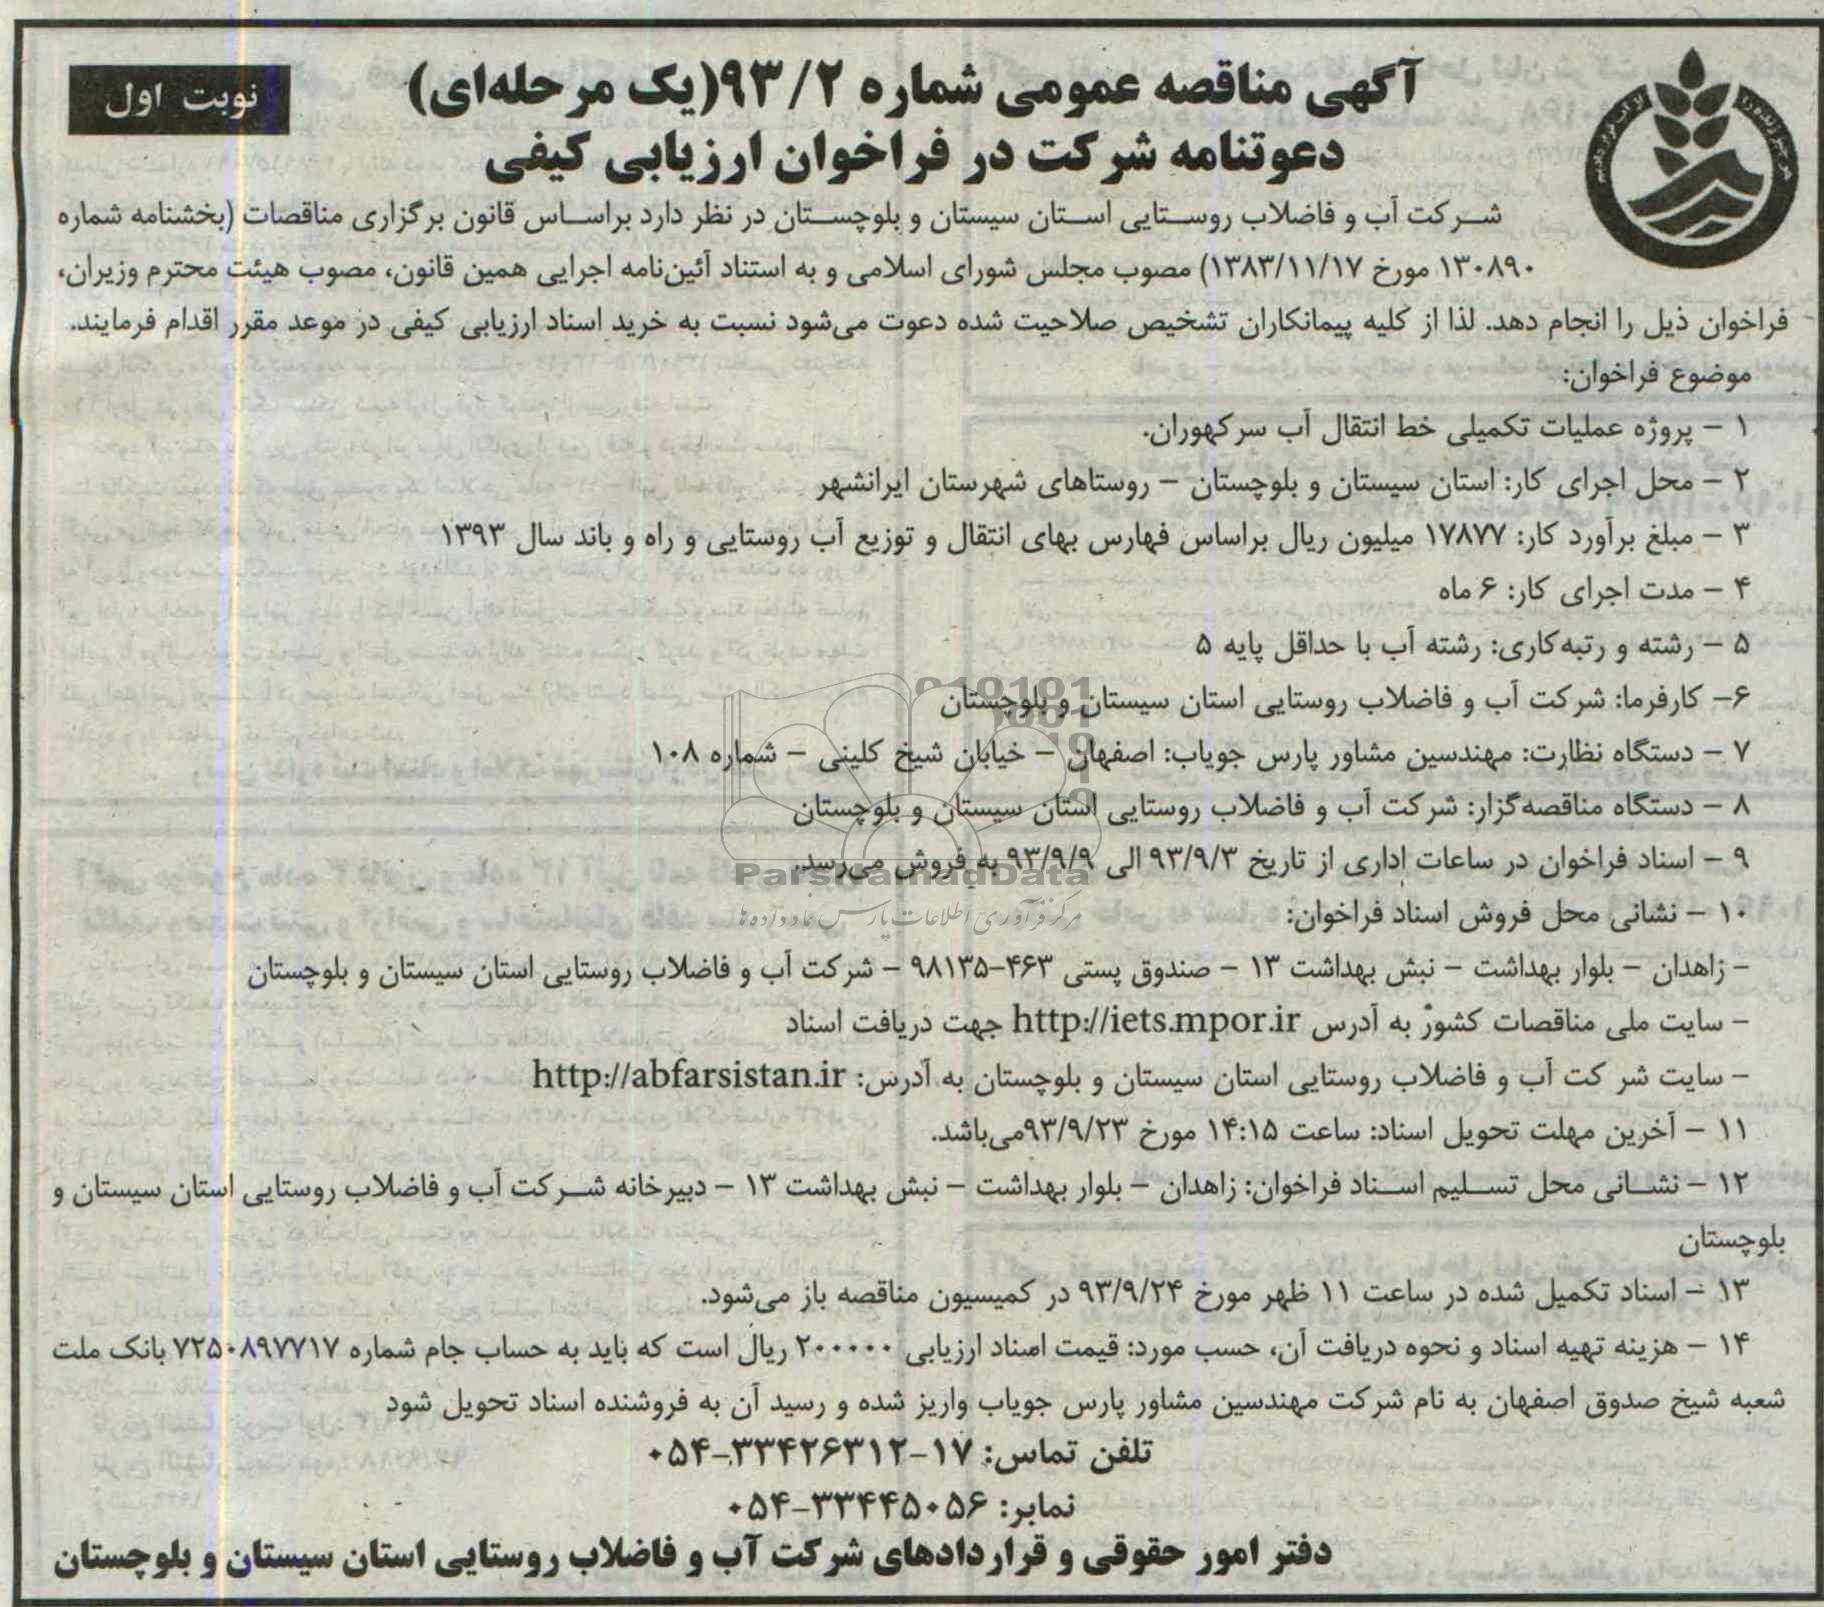 آگهی مناقصه عمومی شماره ۹۳/۲(یک مرحله‌ای)
نوبت اول
دعوتنامه شرکت در فراخوان ارزیابی کیفی
شرکت آب و فاضلاب روستایی استان سیستان و بلوچستان در نظر دارد براساس قانون برگزاری مناقصات (بخشنامه شماره
۱۳۰۸۹۰ مورخ ۱۳۸۳/۱۱/۱۷) مصوب مجلس شورای اسلامی و به استناد آئین‌نامه اجرایی همین قانون، مصوب هیئت محترم وزیران،
فراخوان ذیل را انجام دهد. لذا از کلیه پیمانکاران تشخیص صلاحیت شده دعوت می‌شود نسبت به خرید اسناد ارزیابی کیفی در موعد مقرر اقدام فرمایند.
موضوع فراخوان:
۱ – پروژه عملیات تکمیلی خط انتقال آب سرکهوران.
۲ – محل اجرای کار: استان سیستان و بلوچستان – روستاهای شهرستان ایرانشهر
۳ – مبلغ برآورد کار: ۱۷۸۷۷ میلیون ریال براساس فهارس بهای انتقال و توزیع آب روستایی و راه و باند سال ۱۳۹۳
۴ – مدت اجرای کار: ۶ ماه
۵ – رشته و رتبه‌کاری: رشته آب با حداقل پایه ۵
۶– کارفرما: شرکت آب و فاضلاب روستایی استان سیستان و بلوچستان
۷ – دستگاه نظارت: مهندسین مشاور پارس جویاب: اصفهان – خیابان شیخ کلینی – شماره ۱۰۸
۸ – دستگاه مناقصه‌گزار: شرکت آب و فاضلاب روستایی استان سیستان و بلوچستان
۹ – اسناد فراخوان در ساعات اداری از تاریخ ۹۳/۹/۳ الی ۹۳/۹/۹ به فروش می‌رسد.
ParsNamadData
مرکز فرآوری اطلاعات پارس نماد داده‌ها
۱۰ – نشانی محل فروش اسناد فراخوان:
– زاهدان – بلوار بهداشت – نبش بهداشت ۱۳ – صندوق پستی ۴۶۳–۹۸۱۳۵ – شرکت آب و فاضلاب روستایی استان سیستان و بلوچستان
– سایت ملی مناقصات کشور به آدرس http://iets.mpor.ir جهت دریافت اسناد
– سایت شرکت آب و فاضلاب روستایی استان سیستان و بلوچستان به آدرس: http://abfarsistan.ir
۱۱ – آخرین مهلت تحویل اسناد: ساعت ۱۴:۱۵ مورخ ۹۳/۹/۲۳می‌باشد.
۱۲ – نشانی محل تسلیم اسناد فراخوان: زاهدان – بلوار بهداشت – نبش بهداشت ۱۳ – دبیرخانه شرکت آب و فاضلاب روستایی استان سیستان و
بلوچستان
۱۳ – اسناد تکمیل شده در ساعت ۱۱ ظهر مورخ ۹۳/۹/۲۴ در کمیسیون مناقصه باز می‌شود.
۱۴ – هزینه تهیه اسناد و نحوه دریافت آن، حسب مورد: قیمت اسناد ارزیابی ۲۰۰۰۰۰ ریال است که باید به حساب جام شماره ۷۲۵۰۸۹۷۷۱۷ بانک ملت
شعبه شیخ صدوق اصفهان به نام شرکت مهندسین مشاور پارس جویاب واریز شده و رسید آن به فروشنده اسناد تحویل شود
تلفن تماس: ۱۷–۳۳۴۲۶۳۱۲–۰۵۴
نمابر: ۳۳۴۴۵۰۵۶–۰۵۴
دفتر امور حقوقی و قراردادهای شرکت آب و فاضلاب روستایی استان سیستان و بلوچستان